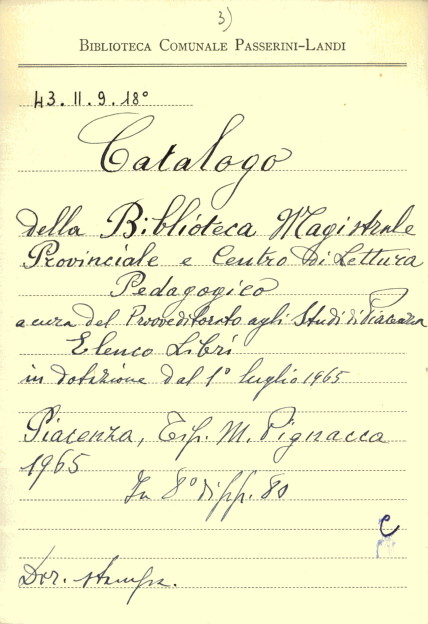 3)
BIBLIOTECA COMUNALE PASSERINI-LANDI
43. II. 9. 18°
Catalogo
della Biblioteca Magistrale
Provinciale e Centro di Lettura
Pedagogico
a cura del Provveditorato agli Studi di Piacenza
Elenco Libri
in dotazione dal 1° luglio 1965
Piacenza, Tip. M. Pignacca
1965
In 8° di pp. 80
C
Dir. stampa.